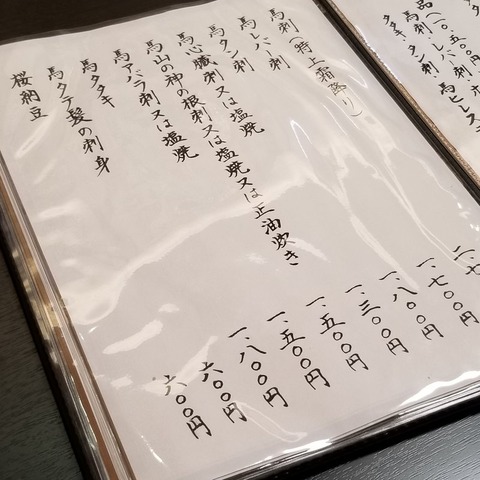 品(一〇、五〇〇円
レバー刺
タタキ、タン刺 馬ヒレス
馬刺(特上霜降り) 二、七
馬レバー刺 一、七〇〇円
馬タン刺 一、八〇〇円
馬心臓刺又は塩焼 一、三〇〇円
馬山の神の根刺又は塩焼又は正油炊き 一、五〇〇円
馬アバラ刺又は塩焼 一、五〇〇円
馬タタキ 一、八〇〇円
馬タテ髪の刺身 六〇〇円
桜納豆 六〇〇円